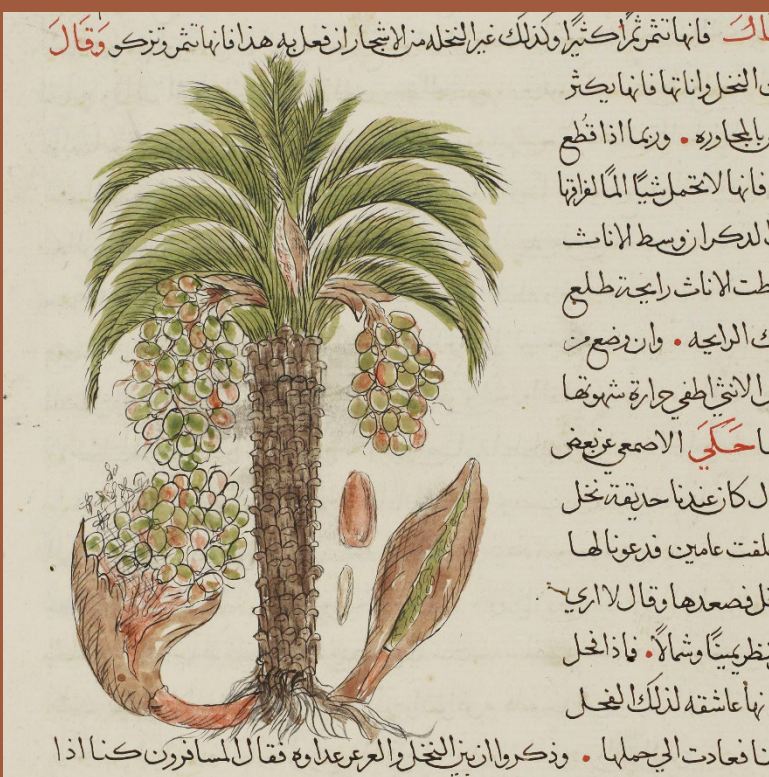 فانها تثمر ثمرا كثيرا وكذلك غير النخله من الاشجار ان فعل به هذا فانها تثمر وتزكو وَقَالَ
النخل واناثها فانها يكثر
بالمجاوره • وربما اذا قُطع
فانها لا تحمل شيًا المًا لفراقها
الدكران وسط الاناث
الاناث رايحة طلع
الرايحه • وان وضع من
الانثى اطفى حرارة شهوتها
حَكَيَ الاصمعي عن بعض
كان عندنا حديقة نخل
عامين فدعونا لها
فصعدها وقال لا اري
يمينًا وشمالًا • فاذا فحل
عاشقه لذلك الفحل
فعادت الى حملها • وذكروا ان بين النخل والعرعر عداوه فقال المسافرون كنا اذا